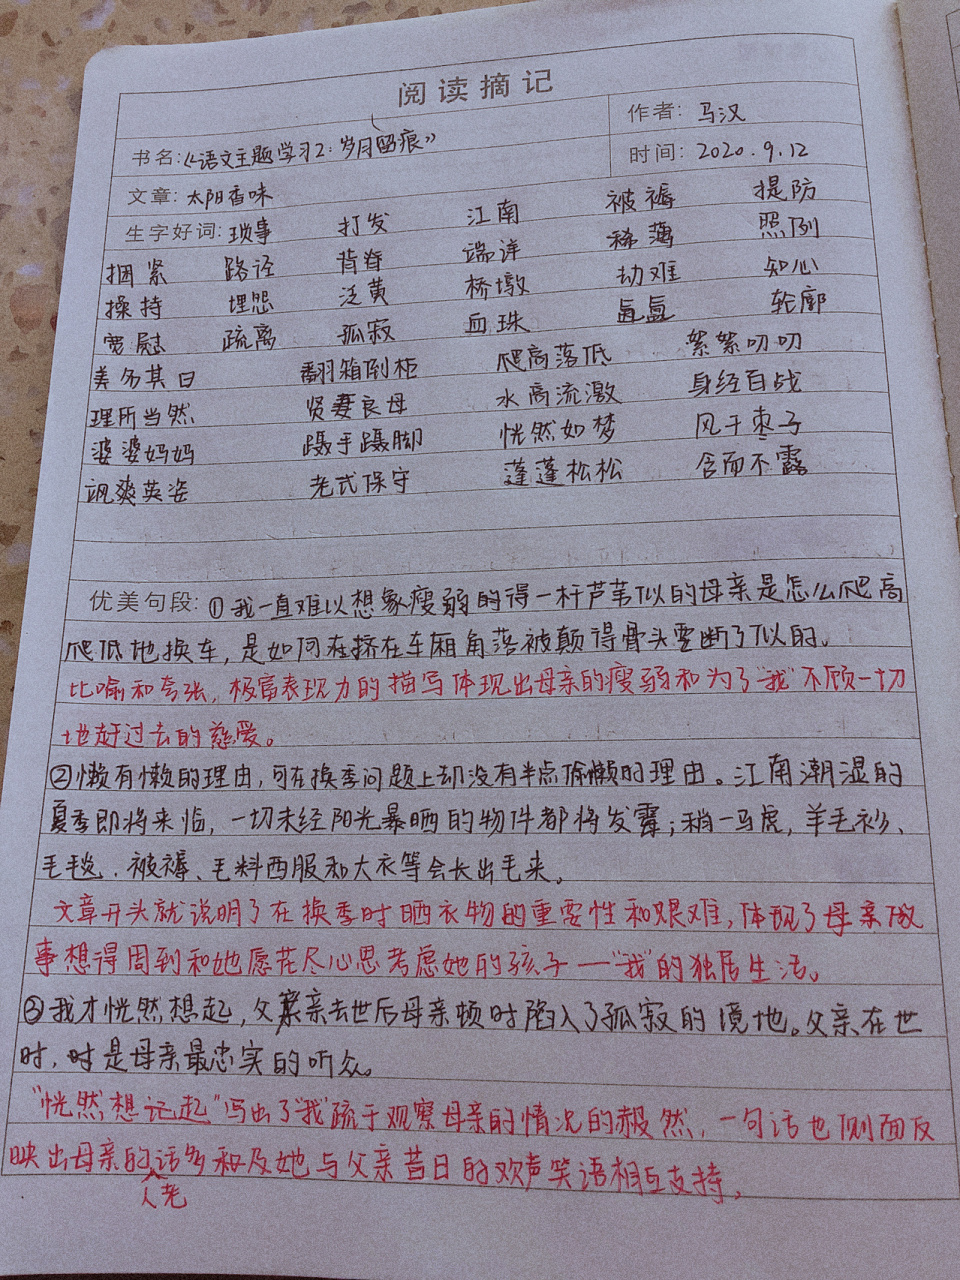 阅读摘记
书名:《语文主题学习2:岁月留痕》 作者: 马汉
时间: 2020.9.12
文章: 太阳香味
生字好词: 琐事 打发 江南 被褥 提防
捆紧 路径 背脊 端详 稀薄 照例
操持 埋怨 泛黄 桥墩 劫难 知心
宽慰 疏离 孤寂 血珠 氤氲 轮廓
美名其曰 翻箱倒柜 爬高落低 絮絮叨叨
理所当然 贤妻良母 水高流激 身经百战
婆婆妈妈 蹑手蹑脚 恍然如梦 风干枣子
飒爽英姿 老式保守 蓬蓬松松 含而不露
优美句段: ①我一直难以想象瘦弱的得一杆芦苇似的母亲是怎么爬高
爬低地换车,是如何在挤在车厢角落被颠得骨头要断了似的。
比喻和夸张,极富表现力的描写体现出母亲的瘦弱和为了"我"不顾一切
地赶过去的慈爱。
②懒有懒的理由,可在换季问题上却没有半点偷懒的理由。江南潮湿的
夏季即将来临,一切未经阳光暴晒的物件都将发霉;稍一马虎,羊毛衫、
毛毯、被褥、毛料西服和大衣等会长出毛来。
文章开头就说明了在换季时晒衣物的重要性和艰难,体现了母亲做
事想得周到和她愿花尽心思考虑她的孩子——"我"的独居生活。
③我才恍然想起,父亲去世后母亲顿时陷入了孤寂的境地。父亲在世
时,时是母亲最忠实的听众。
"恍然想记起"写出了"我"疏于观察母亲的情况的赧然,一句话也侧面反
映出母亲的话多和及她与父亲昔日的欢声笑语相互支持,
人老